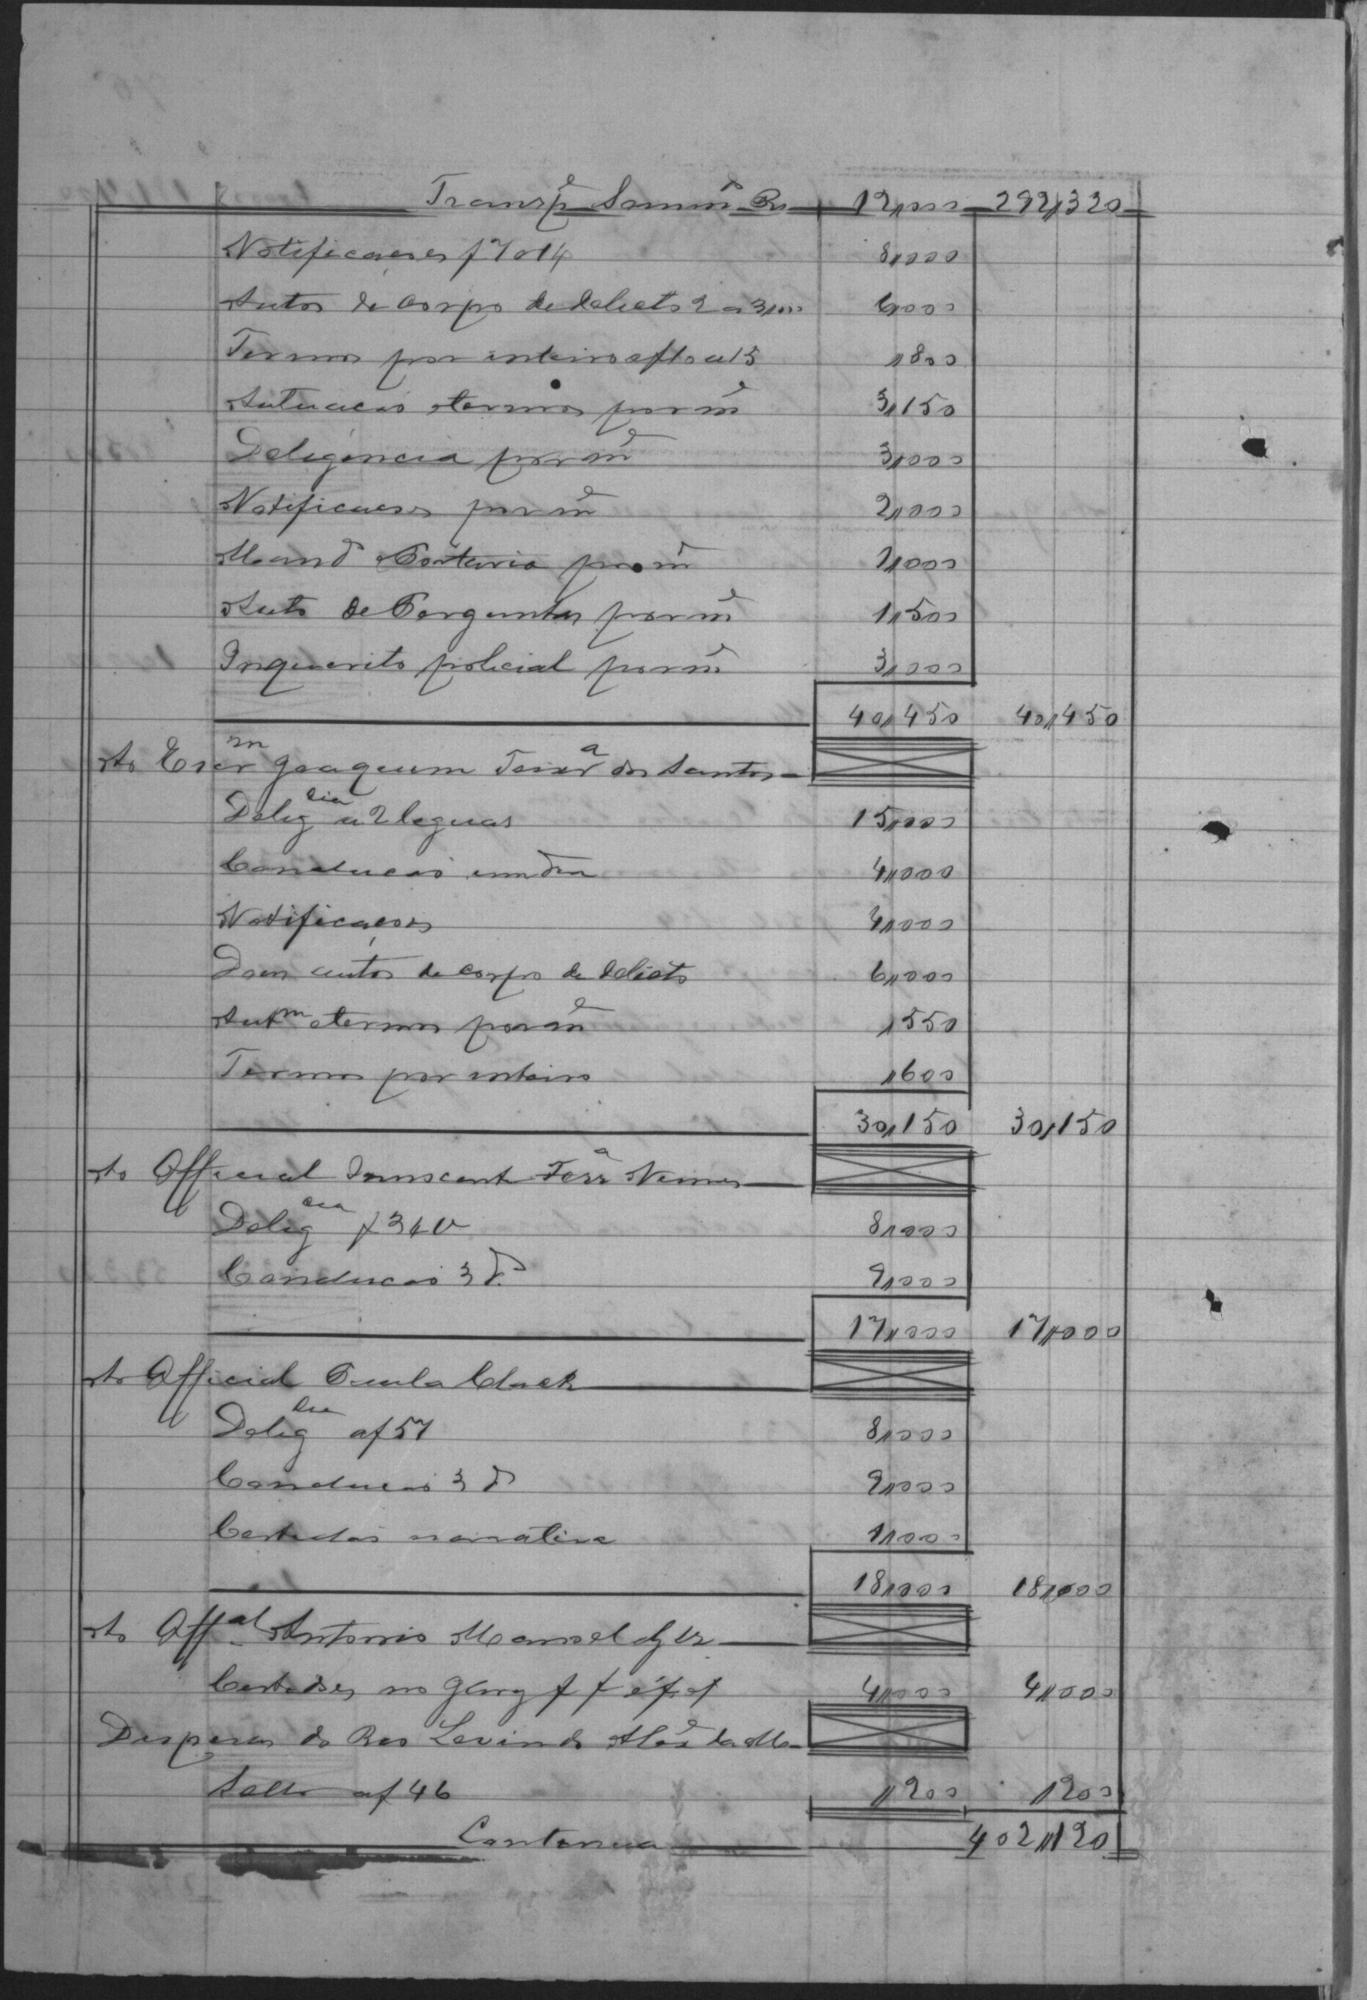 Transpe Somma Rs 12,000 292,320
Notificacoes f 7 o 14 8,000
Autos de Corpo de delicto 2 a 3,000 6,000
Termos por inteiro a f 10 a 15 1,800
Autuacao e termos por m 3,150
Deligencia por m 3,000
Notificacoes por m 2,000
Mand Portaria por m 1,000
Auto de Perguntas por m 1,500
Inquerito policial por m 3,000
40,450 40,450
Ao Escrm Joaquim dos Santos
Deligcia a 2 leguas 15,000
Conducao 4,000
Notificacoes 4,000
Dous autos de corpo de delicto 6,000
Autm e termos por m 1,550
Termos por inteiro 1,600
30,150 30,150
Ao Official Innocente Ferra Nunes
Deligcia f 34v 8,000
Conducao 3 d. 9,000
17,000 17,000
Ao Official Paula
Deligcia a f 57 8,000
Conducao 3 d 9,000
Certidao narrativa 1,000
18,000 18,000
Ao Offal Antonio Manoel
Certidoes f f e f 4,000 4,000
Despesas do Reo Levindo
Sello a f 46 1,200 1,200
Continua 402,120